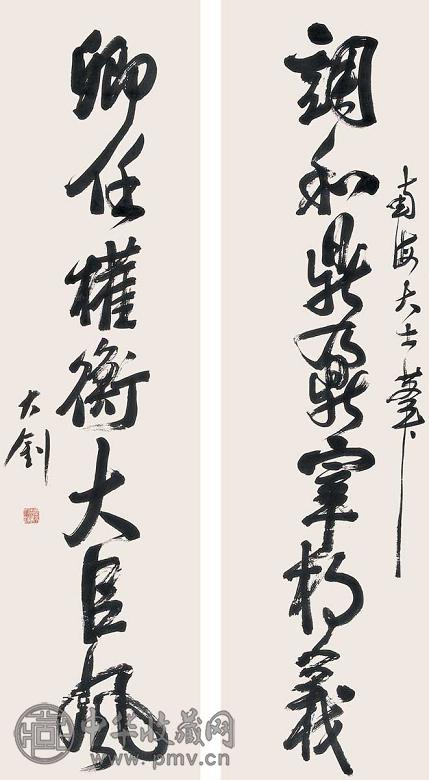 南海大士
調和鼎鼐宰相義
卿任權衡大臣風
大釗
中华收藏网
www.pmv.cn